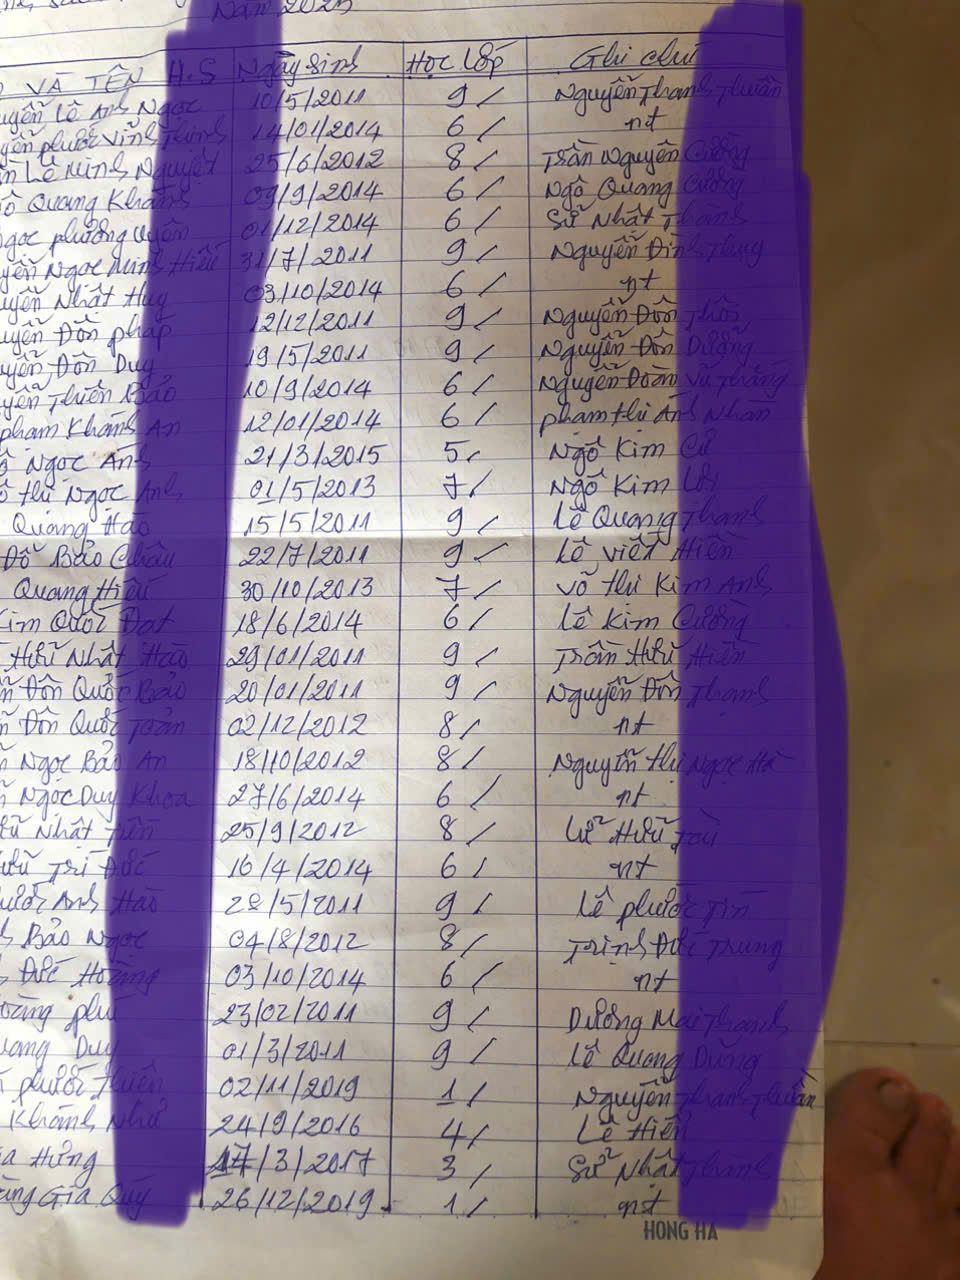 Năm 2025
VÀ TÊN H.S Ngày sinh Học lớp Ghi chú
yễn Lê Anh Ngọc 10/5/2011 9 / Nguyễn Thanh Thuần
yễn phước Vĩnh Thịnh 14/01/2014 6 / nt
n Lê Minh Nguyệt 25/6/2012 8 / Trần Nguyên Cường
ô Quang Khánh 09/9/2014 6 / Ngô Quang Cường
Ngọc phương Uyên 01/12/2014 6 / Sử Nhật Thành
yễn Ngọc Minh Hiếu 31/7/2011 9 / Nguyễn Đình Thung
uyễn Nhất Huy 03/10/2014 6 / nt
uyễn Đôn pháp 12/12/2011 9 / Nguyễn Đôn Thôi
uyễn Đôn Duy 19/5/2011 9 / Nguyễn Đôn Dưỡng
yễn Thiên Bảo 10/9/2014 6 / Nguyễn Đoàn Vũ Thắng
phạm Khánh An 12/01/2014 6 / phạm thị Ánh Nhàn
ô Ngọc Ánh 21/3/2015 5 / Ngô Kim Cư
ô thị Ngọc Anh 01/5/2013 7 / Ngô Kim
Quang Hào 15/5/2011 9 / Lê Quang Thanh
Đỗ Bảo Châu 22/7/2011 9 / Lê Viết Hiền
Quang Hiếu 30/10/2013 7 / Võ thị Kim Anh
Kim Quốc Đạt 18/6/2014 6 / Lê Kim Cường
Hữu Nhật Hào 29/01/2011 9 / Trần Hữu Hiền
n Đôn Quốc Bảo 20/01/2011 9 / Nguyễn Đôn Thanh
n Đôn Quốc Toản 02/12/2012 8 / nt
Ngọc Bảo An 18/10/2012 8 / Nguyễn thị Ngọc Hà
Ngọc Duy Khoa 27/6/2014 6 / nt
ữu Nhật Tiến 25/9/2012 8 / Lư Hữu Tài
ữu Trí Đức 16/4/2014 6 / nt
ước Anh Hào 28/5/2011 9 / Lê phước Tín
h Bảo Ngọc 04/8/2012 8 / Trịnh Đức Trung
h Đức Hoàng 03/10/2014 6 / nt
oàng phú 23/02/2011 9 / Dương Mai Thanh
uang Duy 01/3/2011 9 / Lê Quang Dũng
phước Thiên 02/11/2019 1 / Nguyễn Thanh Thuần
Khánh Như 24/9/2016 4 / Lê Hiền
ia Hưng 17/3/2017 3 / Sử Nhật Thanh
àng Gia Quý 26/12/2019 1 / nt
HONG HA